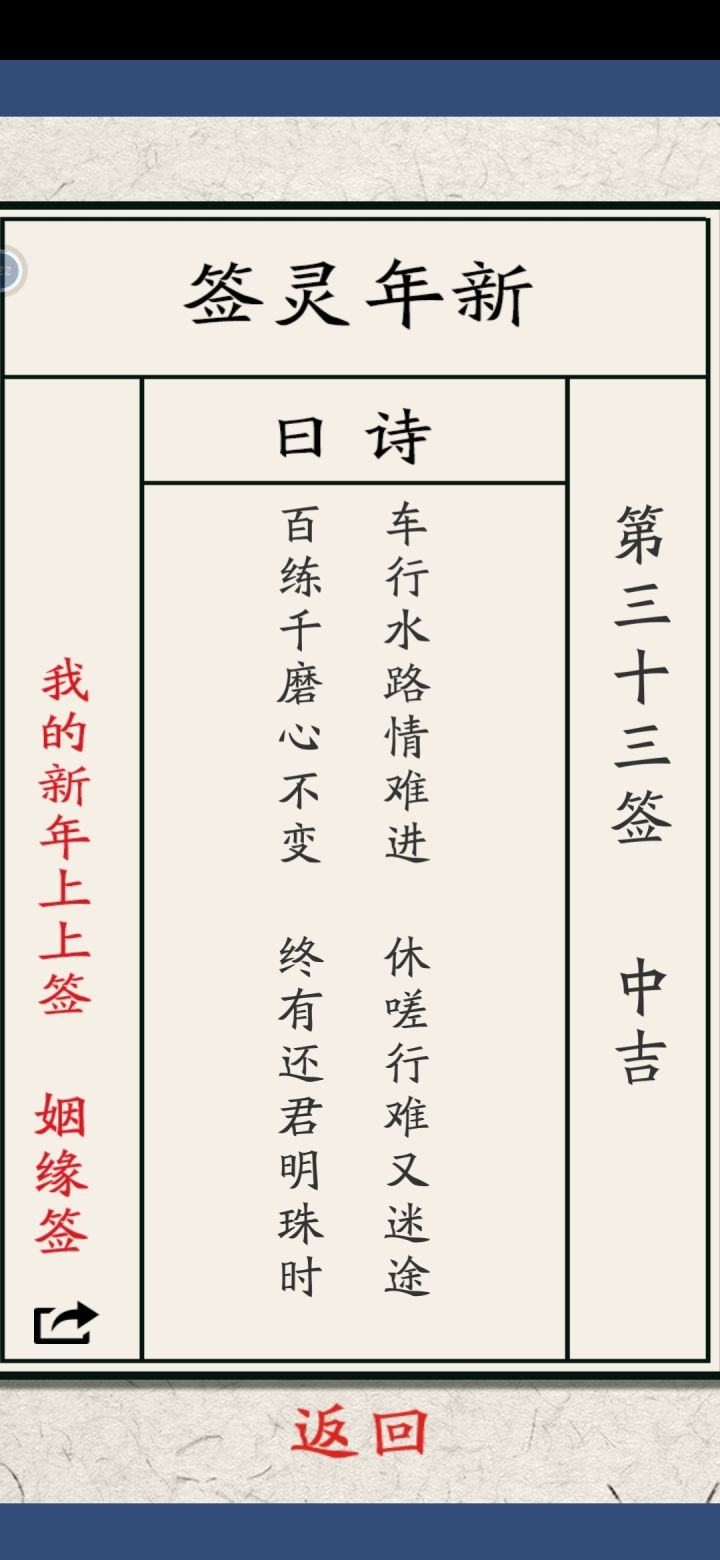 新年灵签
诗曰
第三十三签 中吉
车行水路情难进 休嗟行难又迷途
百练千磨心不变 终有还君明珠时
我的新年上上签 姻缘签
返回